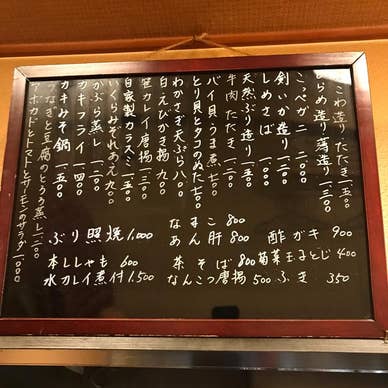 こわ造り たたき 一、二五〇
ひらめ造り 薄造り 一、三〇〇
こっぺがに 二、〇〇〇
剣いか造り 一、二〇〇
しめさば
天然ぶり造り 一、五〇〇
牛肉たたき 一、三〇〇
バイ貝うま煮 七〇〇
とり貝とタコのぬた 七〇〇
わかさぎ天ぷら 八〇〇
白えびかき揚 九〇〇
笹カレイ唐揚 一、三〇〇
自家製カラスミ 一、五〇〇
いくらみぞれあえ 九〇〇
かぶら蒸し 一、二〇〇
カキフライ 一、四〇〇
カキみそ鍋 一、五〇〇
うなぎと豆腐のとうろ蒸し 一、二〇〇
アボカドとトマトとサーモンのサラダ 一、〇〇〇
なまこ 800
ぶり照焼 1,000 あん肝 800 酢ガキ 900
本ししゃも 600 茶そば 800 菊菜玉子とじ 400
水カレイ煮付 1,500 なんこつ唐揚 500 ふき 350